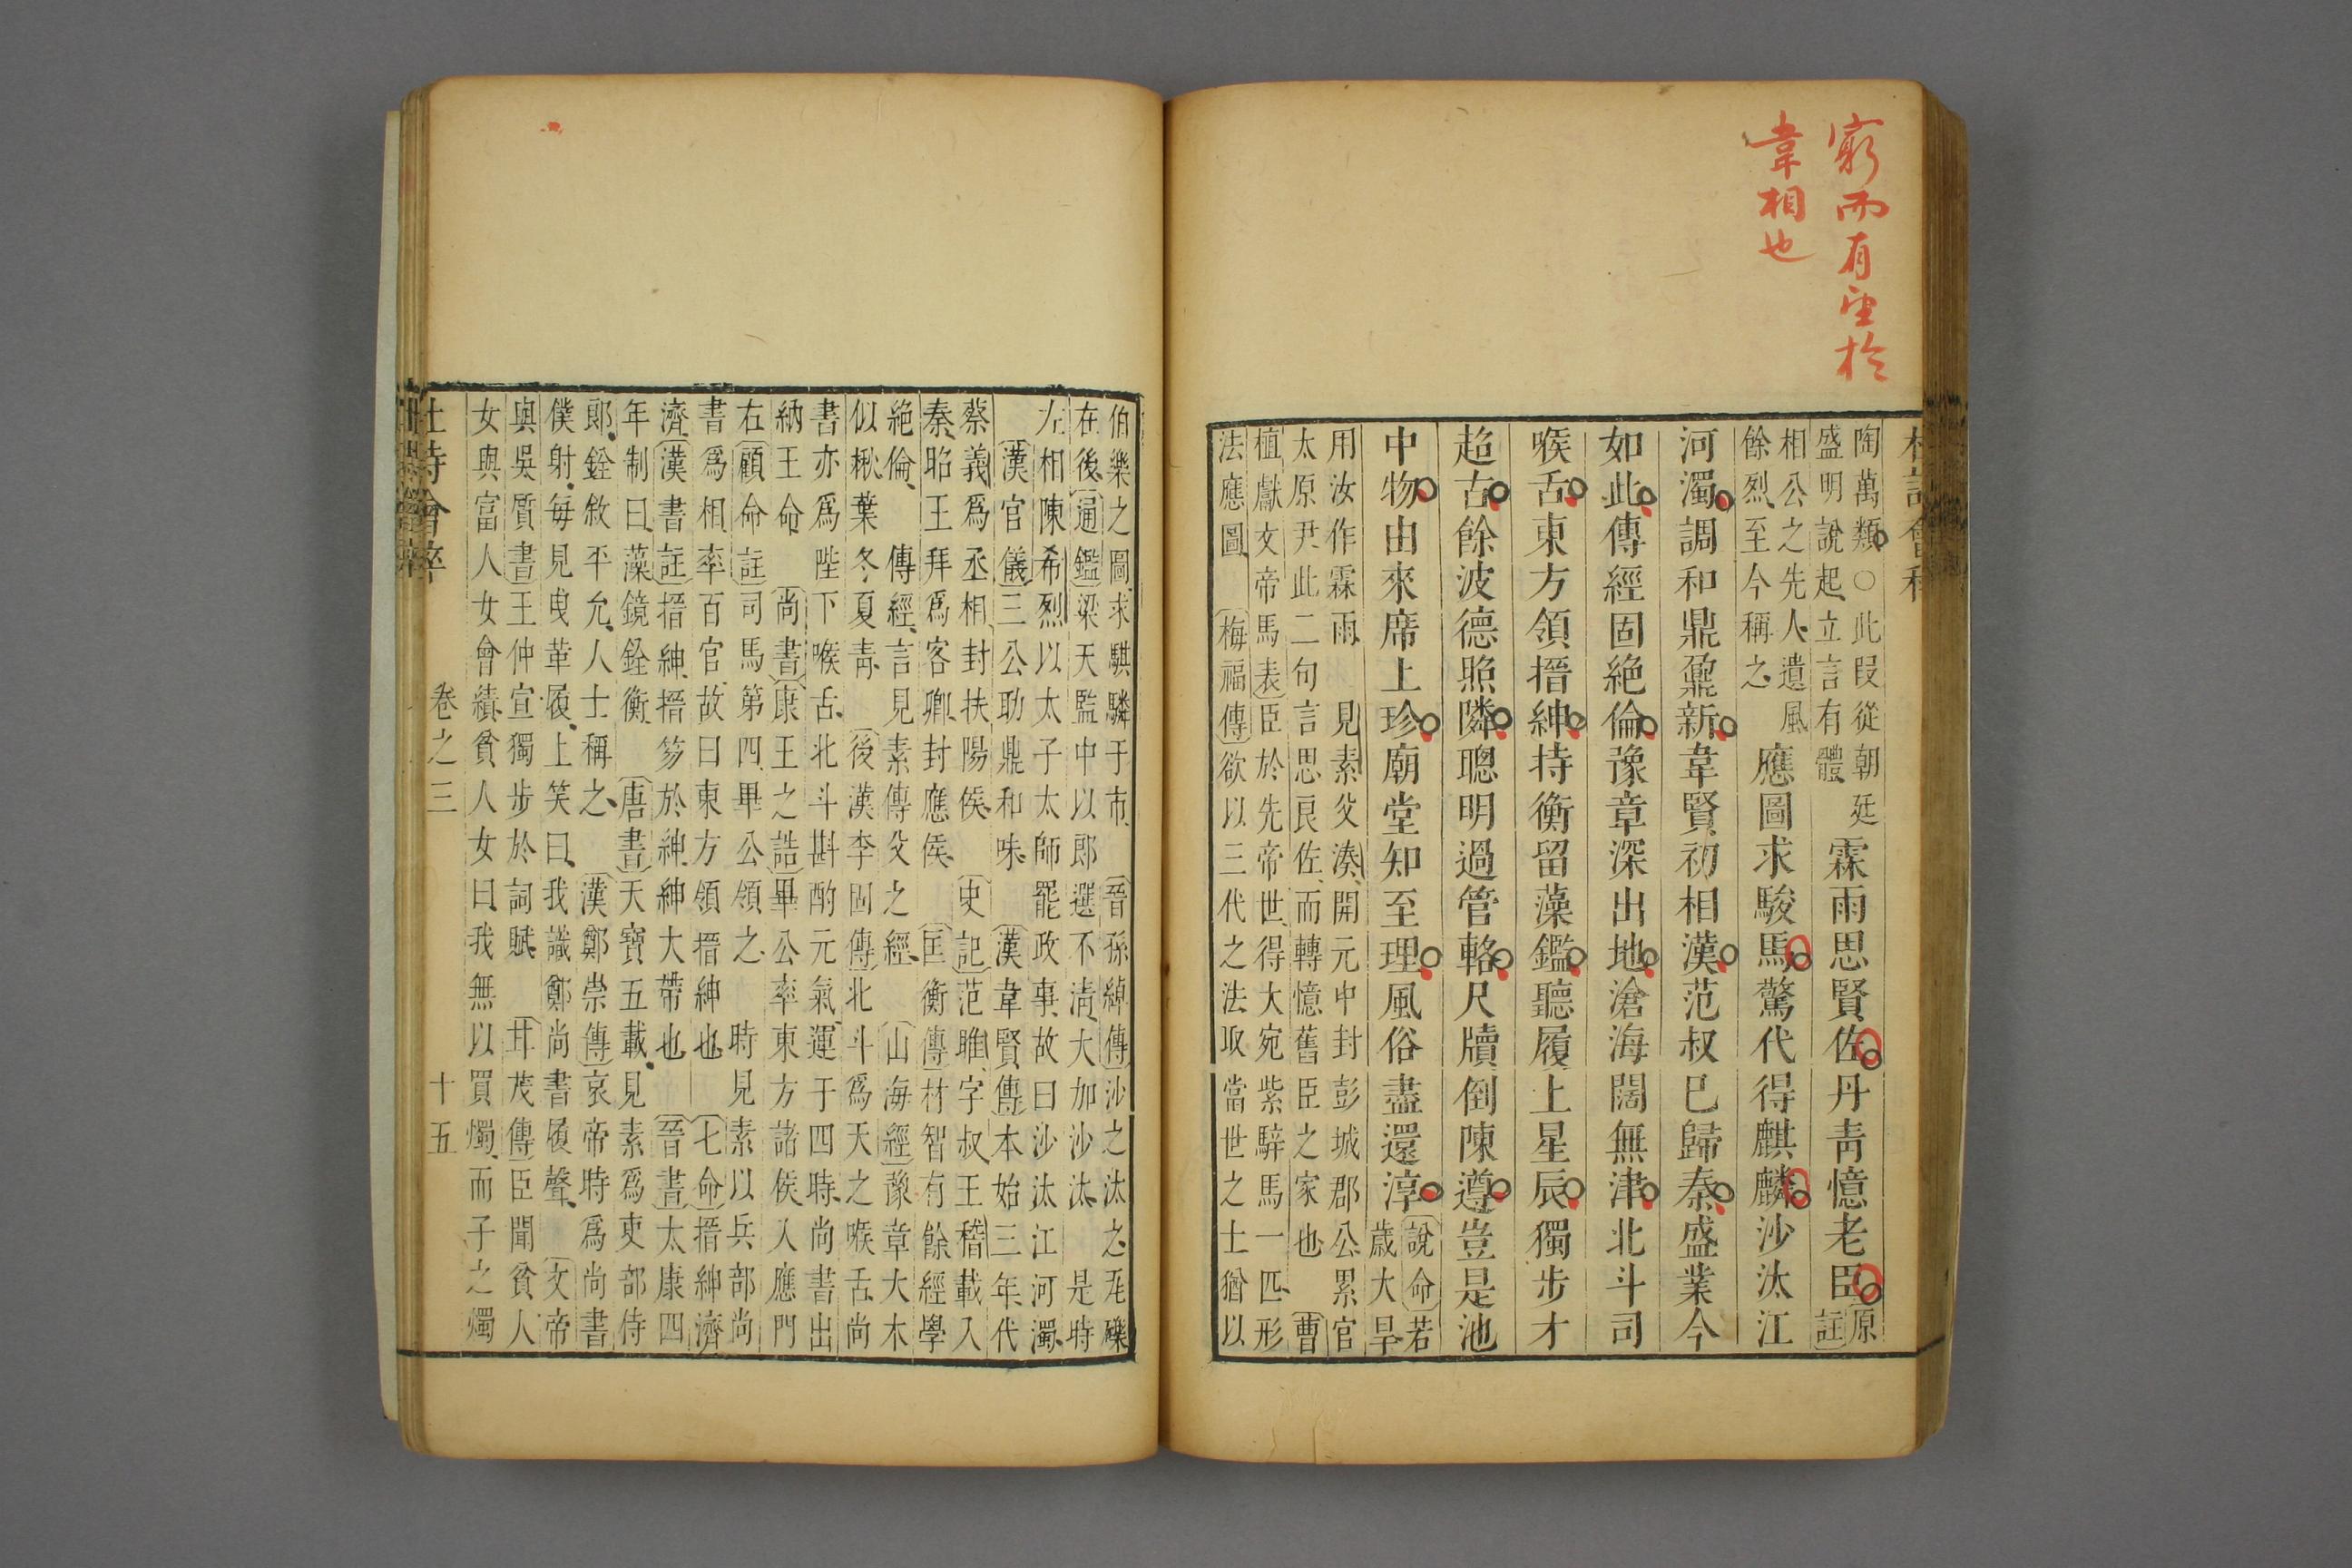 窮而有望於
韋相也
陶萬類○此段從朝廷
盛明說起立言有體
霖雨思賢佐丹青憶老臣
原
註
相公之先人遺風
餘烈至今稱之
應圖求駿馬驚代得麒麟沙汰江
河濁調和鼎鼐新韋賢初相漢范叔已歸秦盛業今
如此傳經固絕倫豫章深出地滄海闊無津北斗司
喉舌東方領搢紳持衡留藻鑑聽履上星辰獨步才
超古餘波德照隣聰明過管輅尺牘倒陳遵豈是池
中物由來席上珍廟堂知至理風俗盡還淳
說命若
歲大旱
用汝作霖雨 見素父湊開元中封彭城郡公累官
太原尹此二句言思良佐而轉憶舊臣之家也 曹
植獻文帝馬表臣於先帝世得大宛紫騂馬一匹形
法應圖 梅福傳欲以三代之法取當世之士猶以
伯樂之圖求騏驎于市 晉孫綽傳沙之汰之瓦礫
在後通鑑梁天監中以郎選不淸大加沙汰 是時
左相陳希烈以太子太師罷政事故曰沙汰江河濁
漢官儀三公助鼎和味 漢韋賢傳本始三年代
蔡義爲丞相封扶陽侯 史記范雎字叔王稽載入
秦昭王拜爲客卿封應侯 匡衡傳材智有餘經學
絕倫 傳經言見素傳父之經 山海經豫章大木
似楸葉冬夏青 後漢李固傳北斗爲天之喉舌尚
書亦爲陛下喉舌北斗斟酌元氣運于四時尚書出
納王命 尚書康王之誥畢公率東方諸侯入應門
右顧命註司馬第四畢公領之 時見素以兵部尚
書爲相率百官故曰東方領搢紳也 七命搢紳濟
濟漢書註搢紳搢笏於紳紳大帶也 晉書太康四
年制曰藻鏡銓衡 唐書天寶五載見素爲吏部侍
郎銓敘平允人士稱之 漢鄭崇傳哀帝時爲尚書
僕射每見曳革履上笑曰我識鄭尚書履聲 文帝
與吳質書王仲宣獨步於詞賦 甘茂傳臣聞貧人
女與富人女會績貧人女曰我無以買燭而子之燭
卷之三 十五